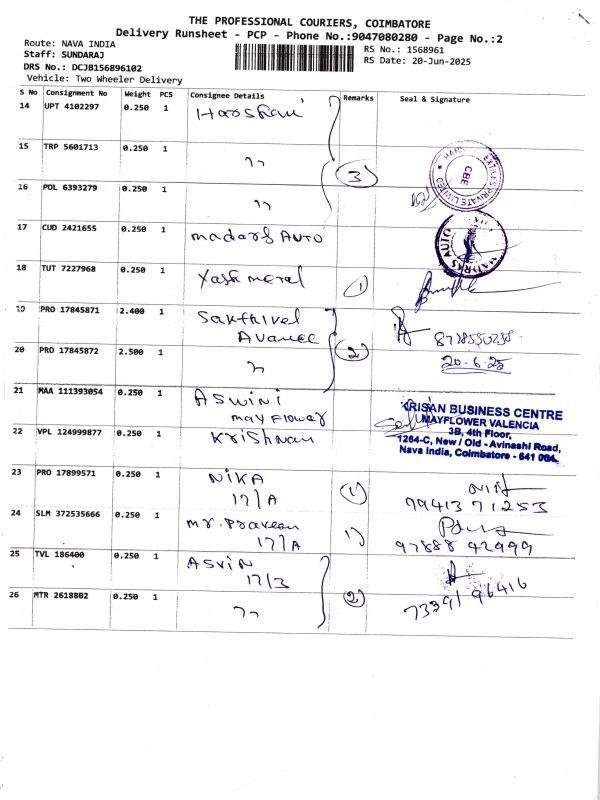 THE PROFESSIONAL COURIERS, COIMBATORE
Delivery Runsheet - PCP - Phone No.:9047080280 - Page No.:2
Route: NAVA INDIA
Staff: SUNDARAJ
DRS No.: DCJB156896102
Vehicle: Two Wheeler Delivery
RS No.: 1568961
RS Date: 20-Jun-2025
S No Consignment No Weight PCS Consignee Details Remarks Seal & Signature
14 UPT 4102297 0.250 1
15 TRP 5601713 0.250 1 ״ 3
16 POL 6393279 0.250 1 ״
PRIVATE LIMITED
CBE
17 CUD 2421655 0.250 1 madarfs AUTO
AUTO
18 TUT 7227968 0.250 1 Yash metal 1
19 PRO 17845871 2.400 1 Sakthivel
Avanee
20 PRO 17845872 2.500 1 ״ 2
20-6-25
21 MAA 111393054 0.250 1 ASWINI
may Flower
22 VPL 124999877 0.250 1 Krishnan
KRISAN BUSINESS CENTRE
MAYFLOWER VALENCIA
3B, 4th Floor,
1264-C, New / Old - Avinashi Road,
Nava India, Coimbatore - 641 004.
23 PRO 17899571 0.250 1 NIKA
17/A 1
79413 71253
24 SLM 372535666 0.250 1 mr. Praveen
17/A 1)
97888 42999
25 TVL 186400 0.250 1 ASVIN
17/3
26 MTR 2618802 0.250 1 ״ 2
73391 96416